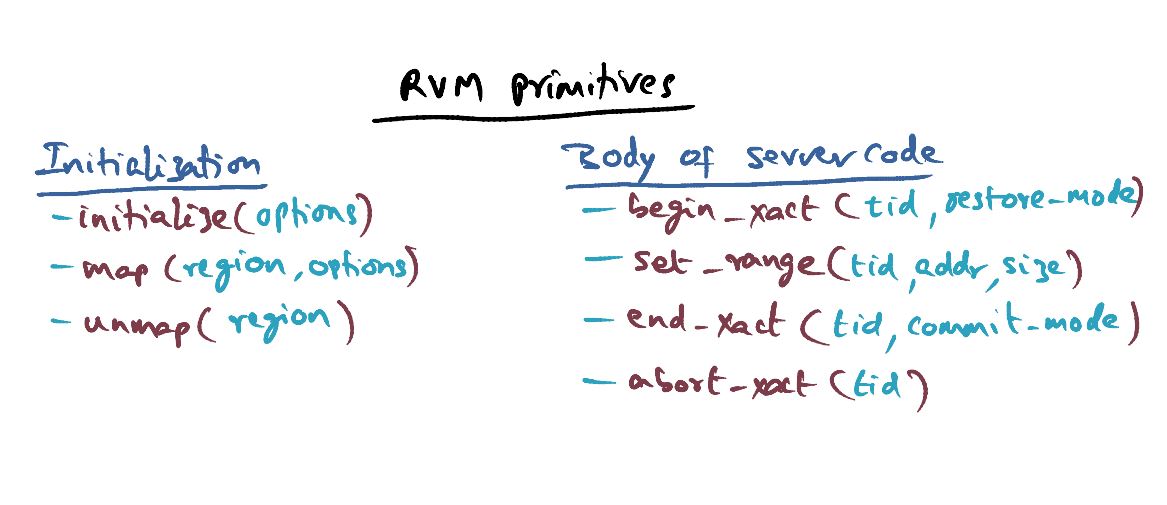 RVM primitives
Initialization
- initialize(options)
- map (region, options)
- unmap( region )
Body of server code
- begin_xact (tid, restore-mode)
- set_range(tid, addr, size)
- end-xact (tid, commit-mode)
- abort-xact (tid)